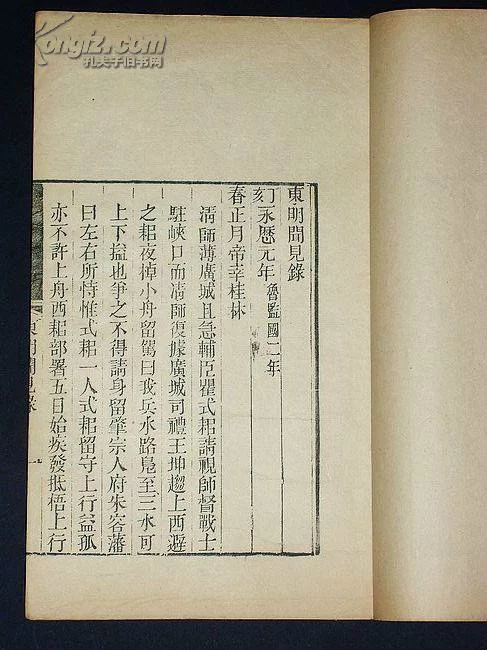 Kongfz.com
孔夫子旧书网
東明聞見錄
丁永歷元年 魯監國二年
刻
春正月帝幸桂林
清師薄廣城且急輔臣瞿式耜請視師督戰士
駐峽口而清師復據廣城司禮王坤趨上西避
之耜夜掉小舟留駕曰我兵水路鳧至三水可
上下搤也爭之不得請身留肇宗人府朱容藩
曰左右所恃惟式耜一人式耜留守上行益孤
亦不許上舟西耜部署五日始疾發抵梧上行
東明聞見錄
一